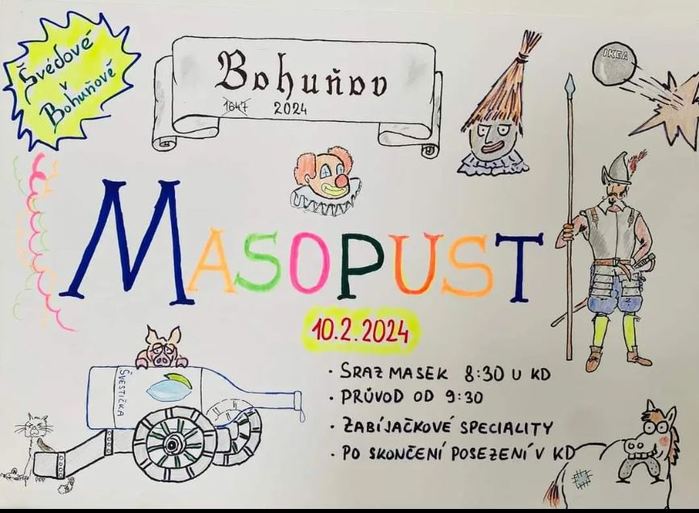 Švédové
v
Bohuňově
Bohuňov
1647 2024
IKEA
MASOPUST
10.2.2024
ŠVESTIČKA
· SRAZ MASEK 8:30 U KD
· PRŮVOD OD 9:30
· ZABÍJAČKOVÉ SPECIALITY
· PO SKONČENÍ POSEZENÍ V KD